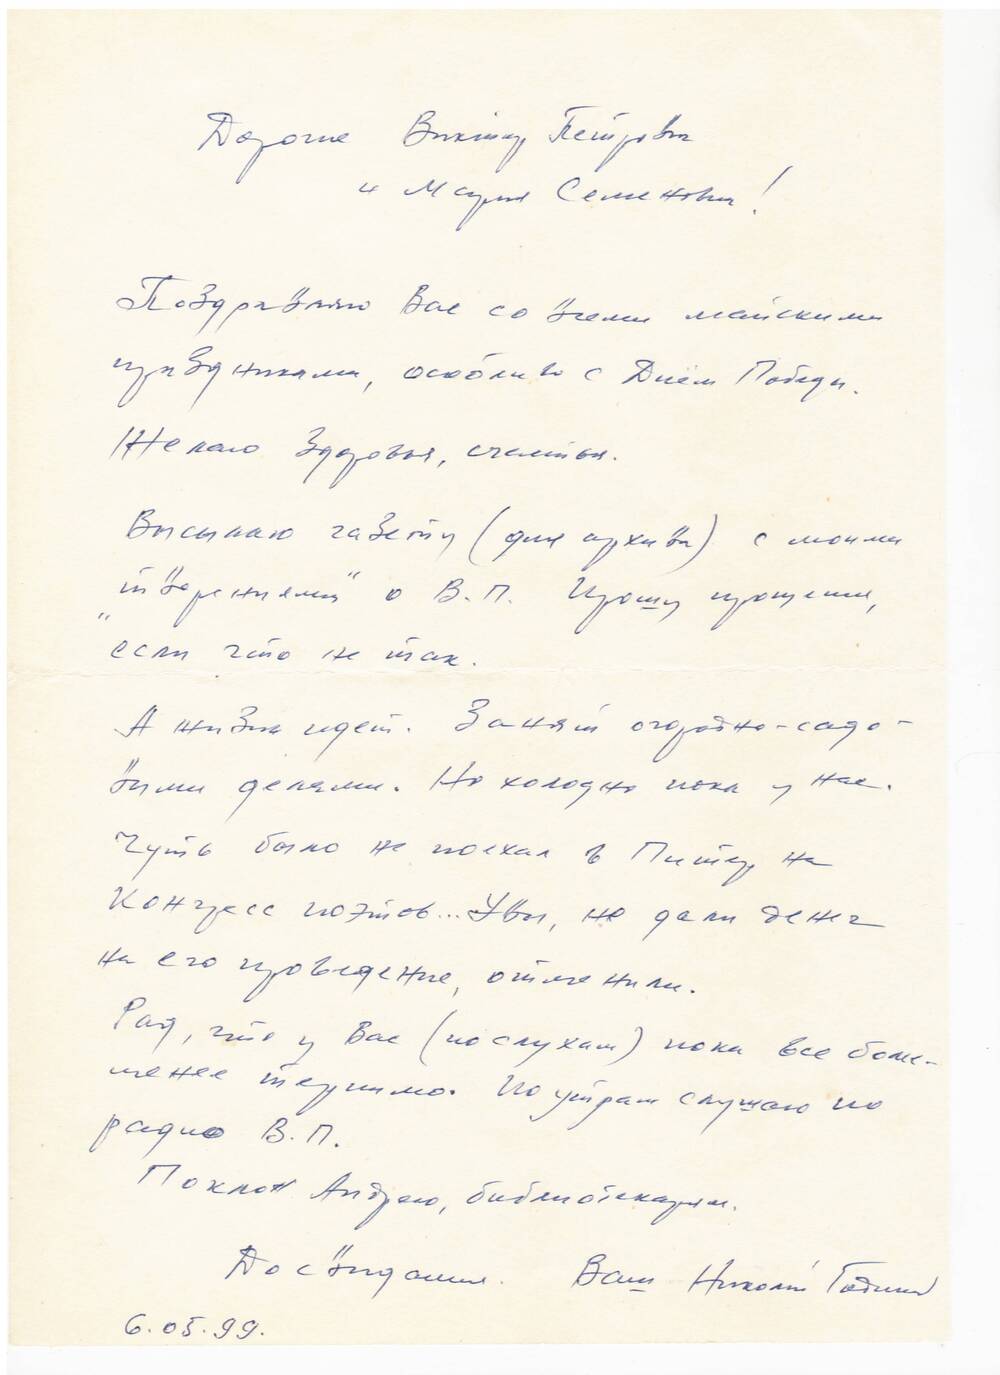 Дорогие Виктор Петрович
и Мария Семеновна!
Поздравляю Вас со всеми майскими
праздниками, особливо с Днём Победы.
Желаю здоровья, счастья.
Высылаю газету (для архива) с моими
"творениями" о В.П. Прошу прощения,
если что не так.
А жизнь идет. Занят огородно-садо-
выми делами. Но холодно пока у нас.
Чуть было не поехал в Питер на
Конгресс поэтов... Увы, не дали денег
на его проведение, отменили.
Рад, что у Вас (по слухам) пока все более-
менее терпимо. По утрам слушаю по
радио В.П.
Поклон Андрею, библиотекарям.
До свидания. Ваш Николай Година
6.05.99.